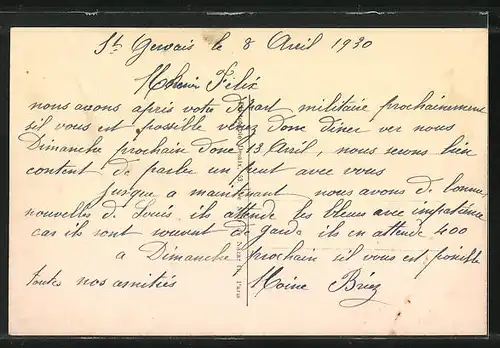 St Gervais le 8 Avril 1930
Félix
nous avons apris votre départ militaire prochainement
sil vous est possible venez donc diner ver nous
Dimanche prochain donc 13 Avril, nous serons bien
content de parler un peut avec vous
Jusque a maintenant nous avons de bonne
nouvelles de Louis ils attende les bleus avec impatience
car ils sont souvent de garde ils en attende 400
a Dimanche prochain sil vous est posible
toutes nos amitiés Moine